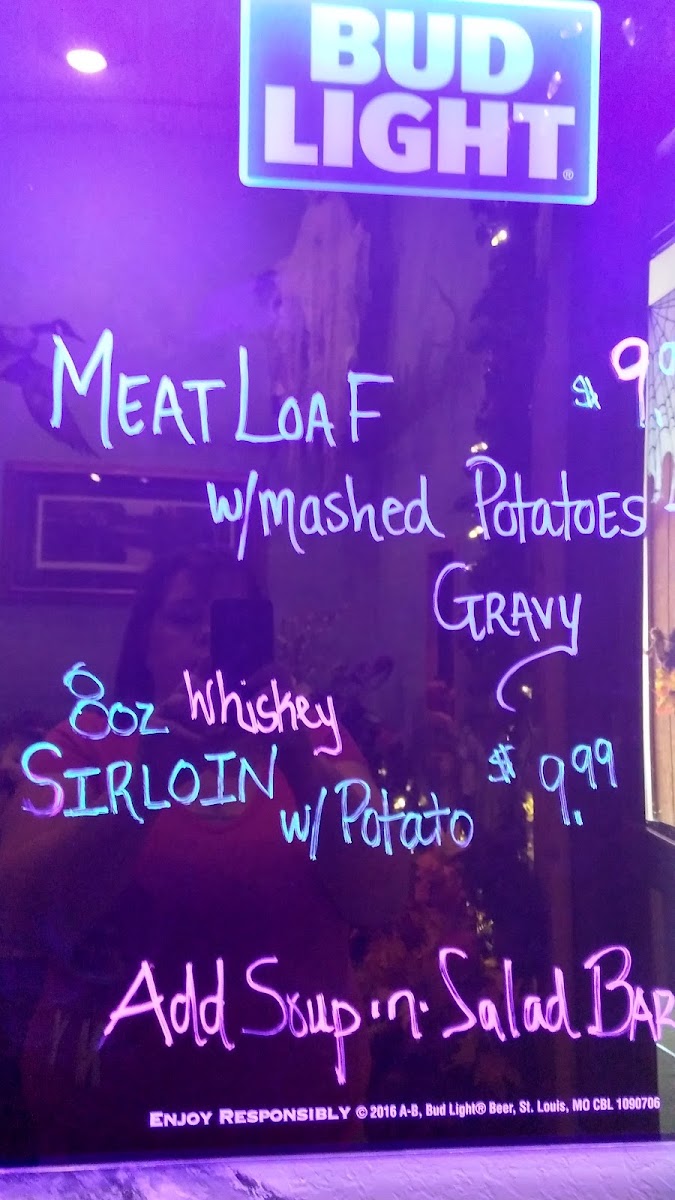 BUD
LIGHT®
MEAT LOAF $ 9.9
w/mashed POTATOES
GRAVY
8oz Whiskey
SIRLOIN w/ Potato $ 9.99
Add Soup·n·Salad BAR
ENJOY RESPONSIBLY © 2016 A-B, Bud Light® Beer, St. Louis, MO CBL 1090706